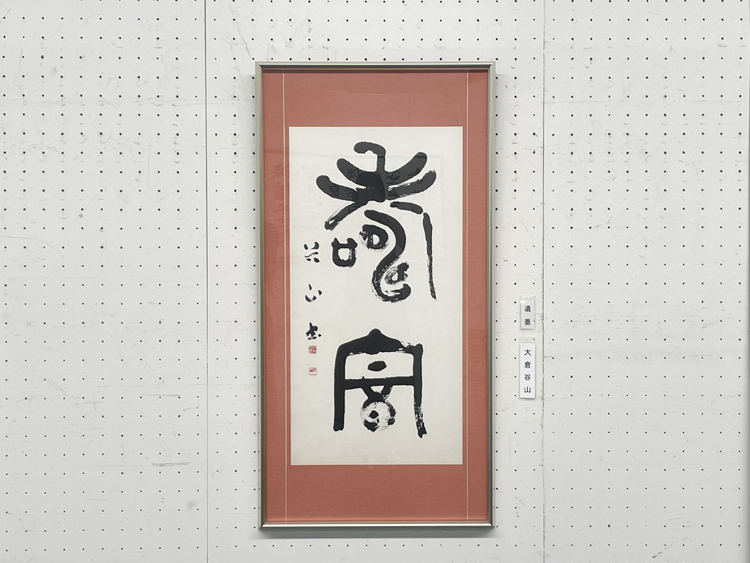 壽安
谷山書
遺墨
大倉谷山